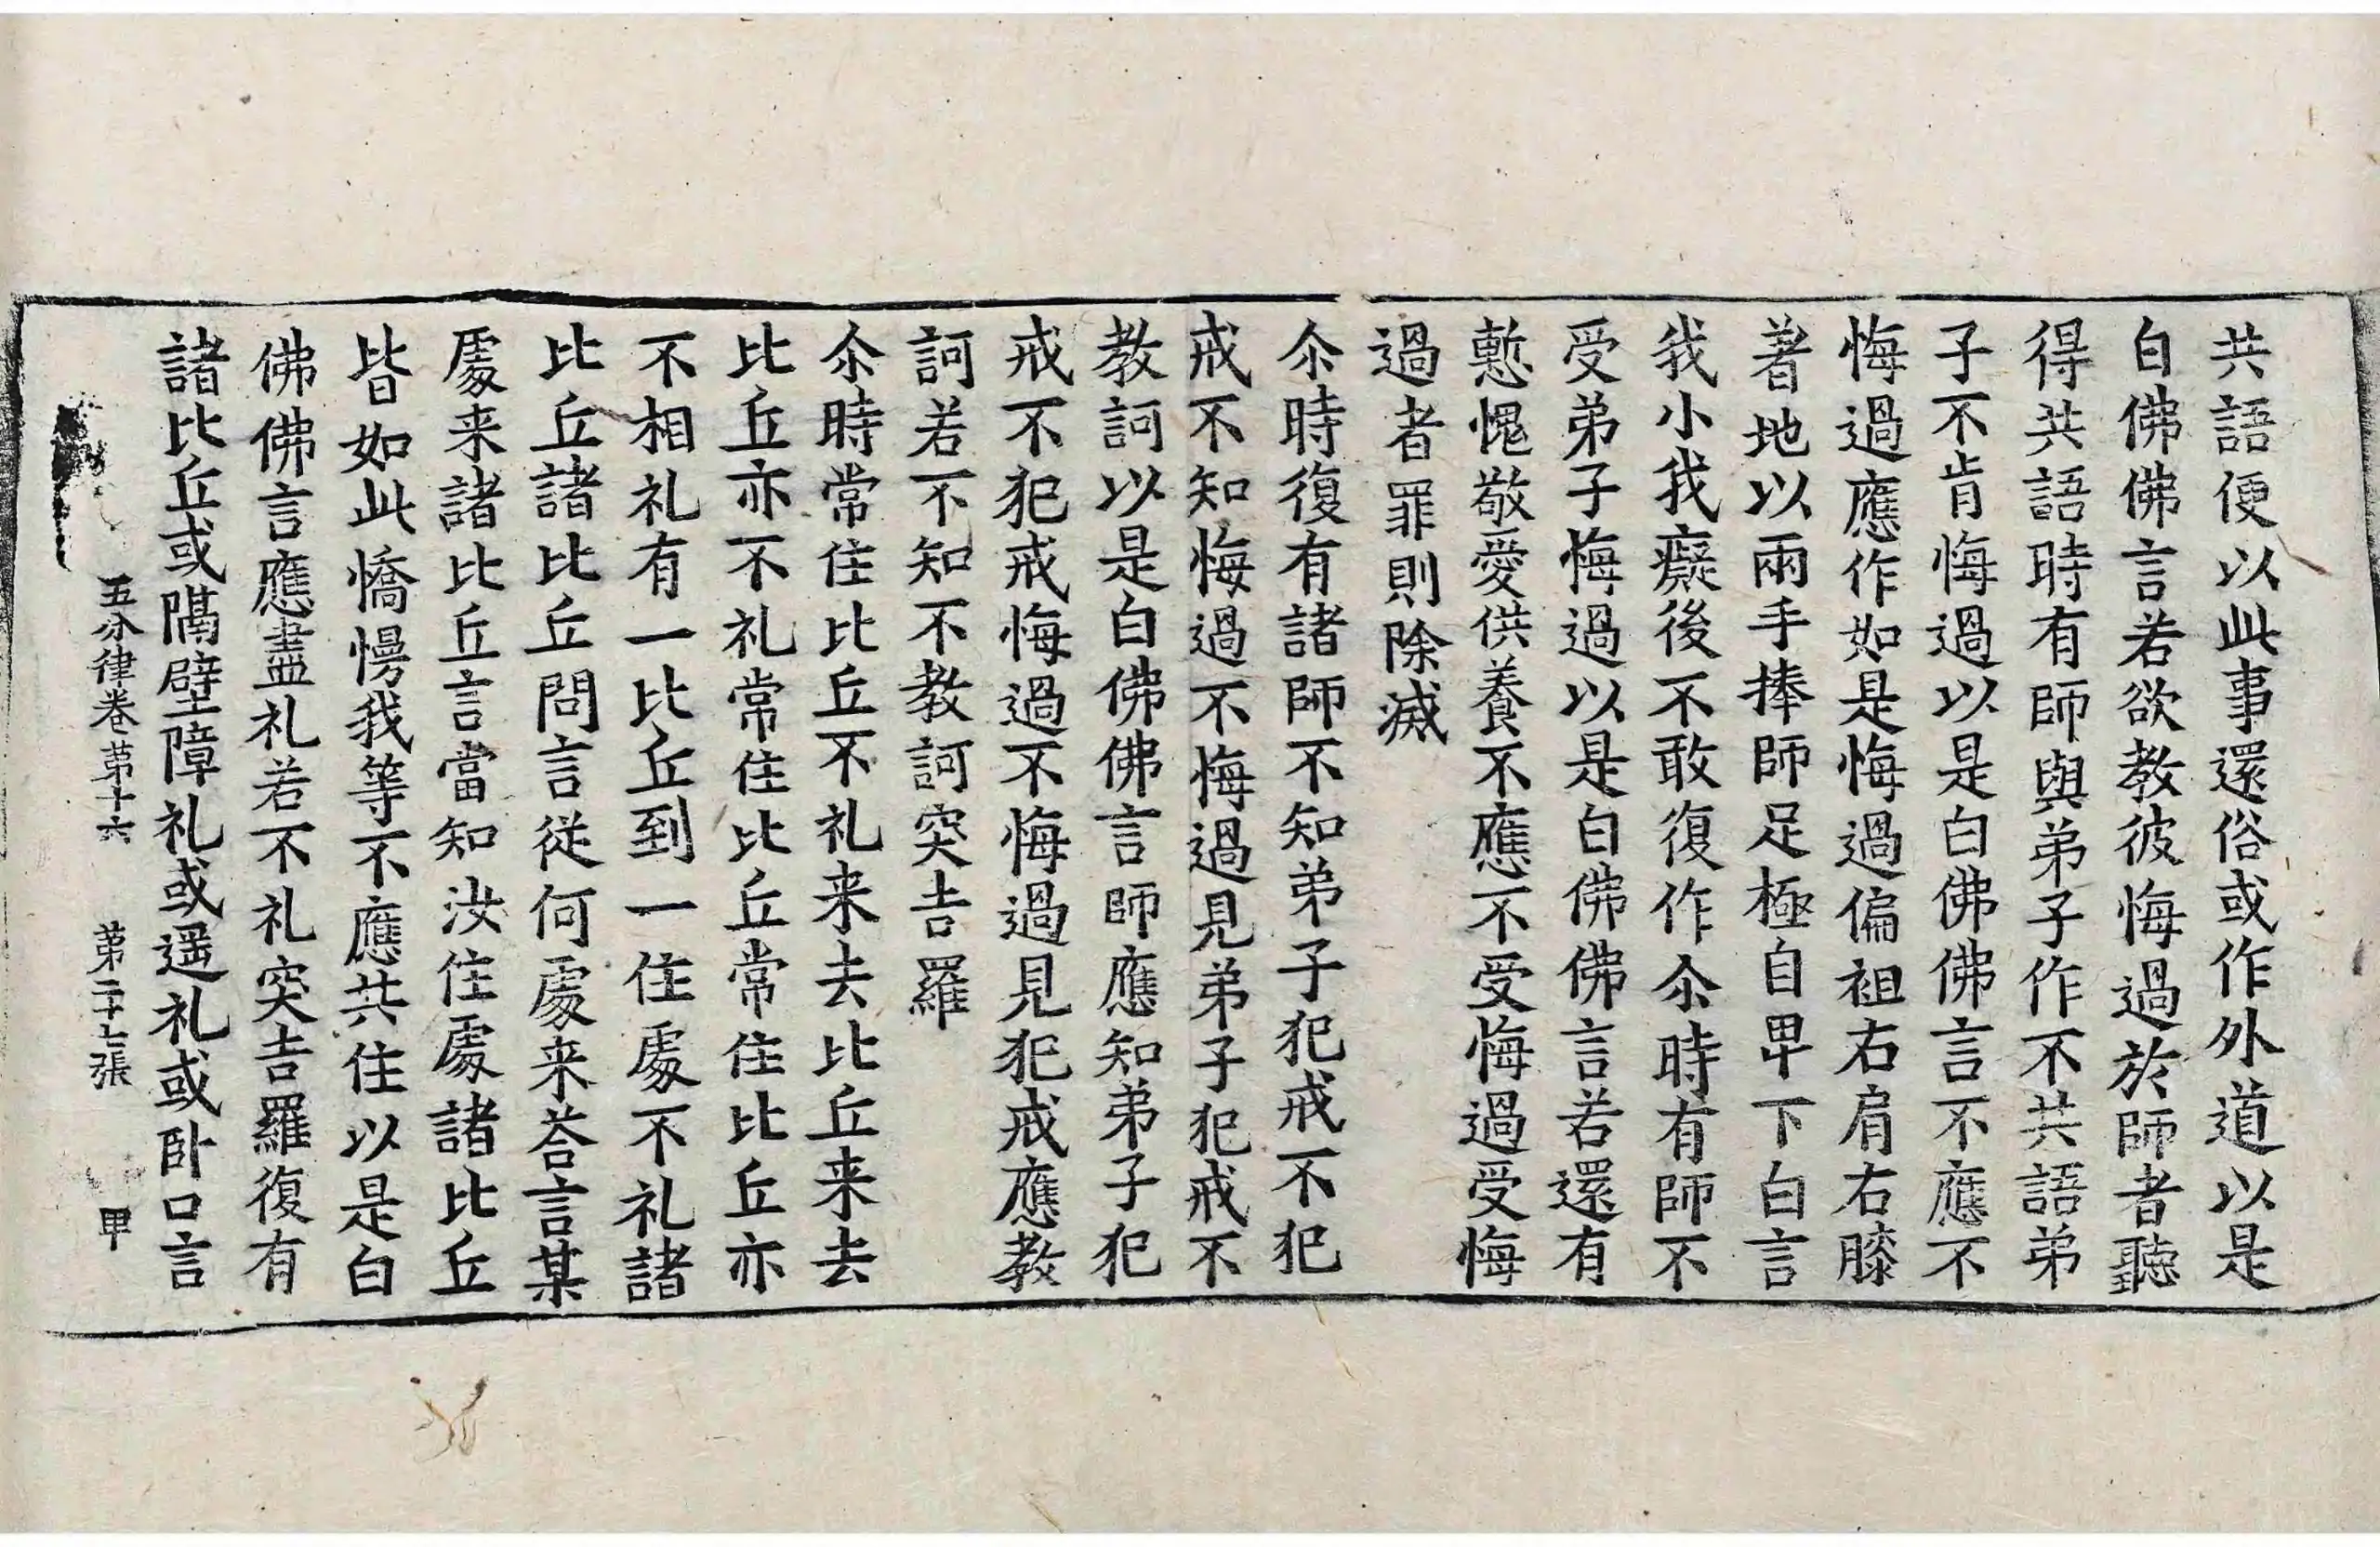 共語便以此事還俗或作外道以是
白佛佛言若欲教彼悔過於師者聽
得共語時有師與弟子作不共語弟
子不肯悔過以是白佛佛言不應不
悔過應作如是悔過偏袒右肩右膝
著地以兩手捧師足極自卑下白言
我小我癡後不敢復作尒時有師不
受弟子悔過以是白佛佛言若還有
慙愧敬愛供養不應不受悔過受悔
過者罪則除滅
尒時復有諸師不知弟子犯戒不犯
戒不知悔過不悔過見弟子犯戒不
教訶以是白佛佛言師應知弟子犯
戒不犯戒悔過不悔過見犯戒應教
訶若不知不教訶突吉羅
尒時常住比丘不礼来去比丘来去
比丘亦不礼常住比丘常住比丘亦
不相礼有一比丘到一住處不礼諸
比丘諸比丘問言従何處来荅言某
處来諸比丘言當知汝住處諸比丘
皆如此憍慢我等不應共住以是白
佛佛言應盡礼若不礼突吉羅復有
諸比丘或隔壁障礼或遥礼或卧口言
五分律卷第十六 第二十七張 甲